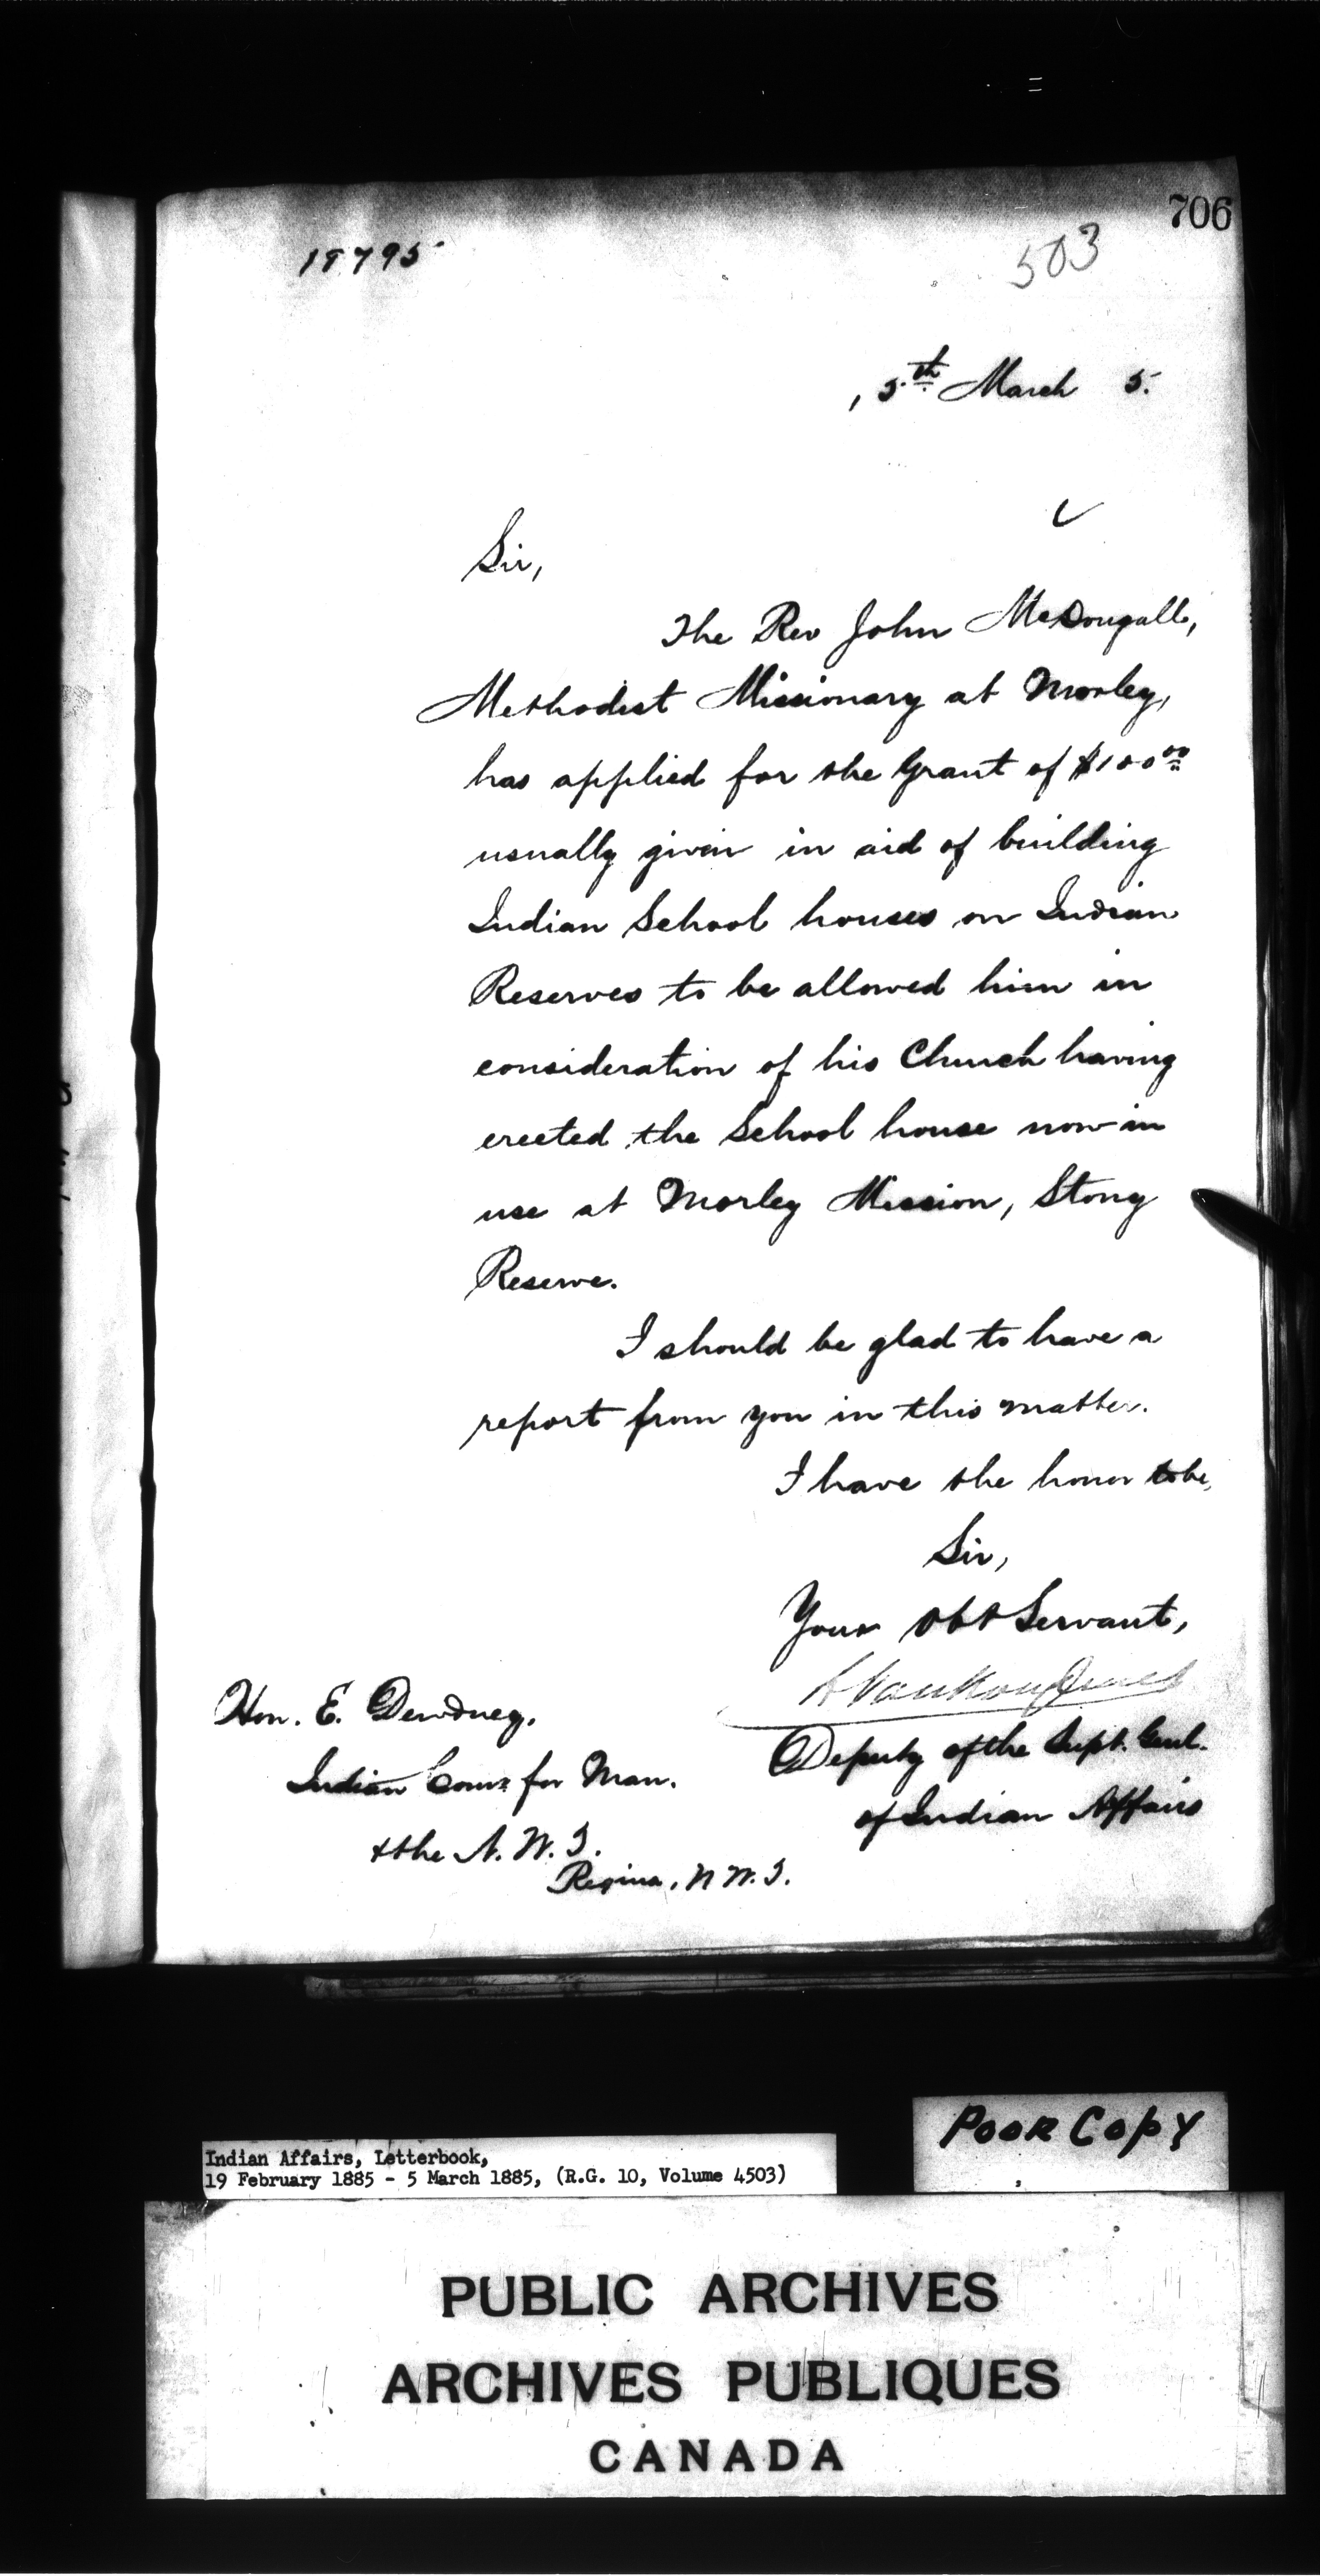 706
18795
503
5th March 5.
Sir,
The Rev John McDougall,
Methodist Missionary at Morley,
has applied for the Grant of $100 00
usually given in aid of building
Indian School houses on Indian
Reserves to be allowed him in
consideration of his Church having
erected the School house now in
use at Morley Mission, Stony
Reserve.
I should be glad to have a
report from you in this matter.
I have the honor to be,
Sir,
Your obt Servant,
L VanKoughnet
Deputy of the Supt. Genl.
of Indian Affairs
Hon. E. Dewdney,
Indian Comr for Man.
& the N. W. T.
Regina, N W. T.
Poor Copy
Indian Affairs, Letterbook,
19 February 1885 - 5 March 1885, (R.G. 10, Volume 4503)
PUBLIC ARCHIVES
ARCHIVES PUBLIQUES
CANADA